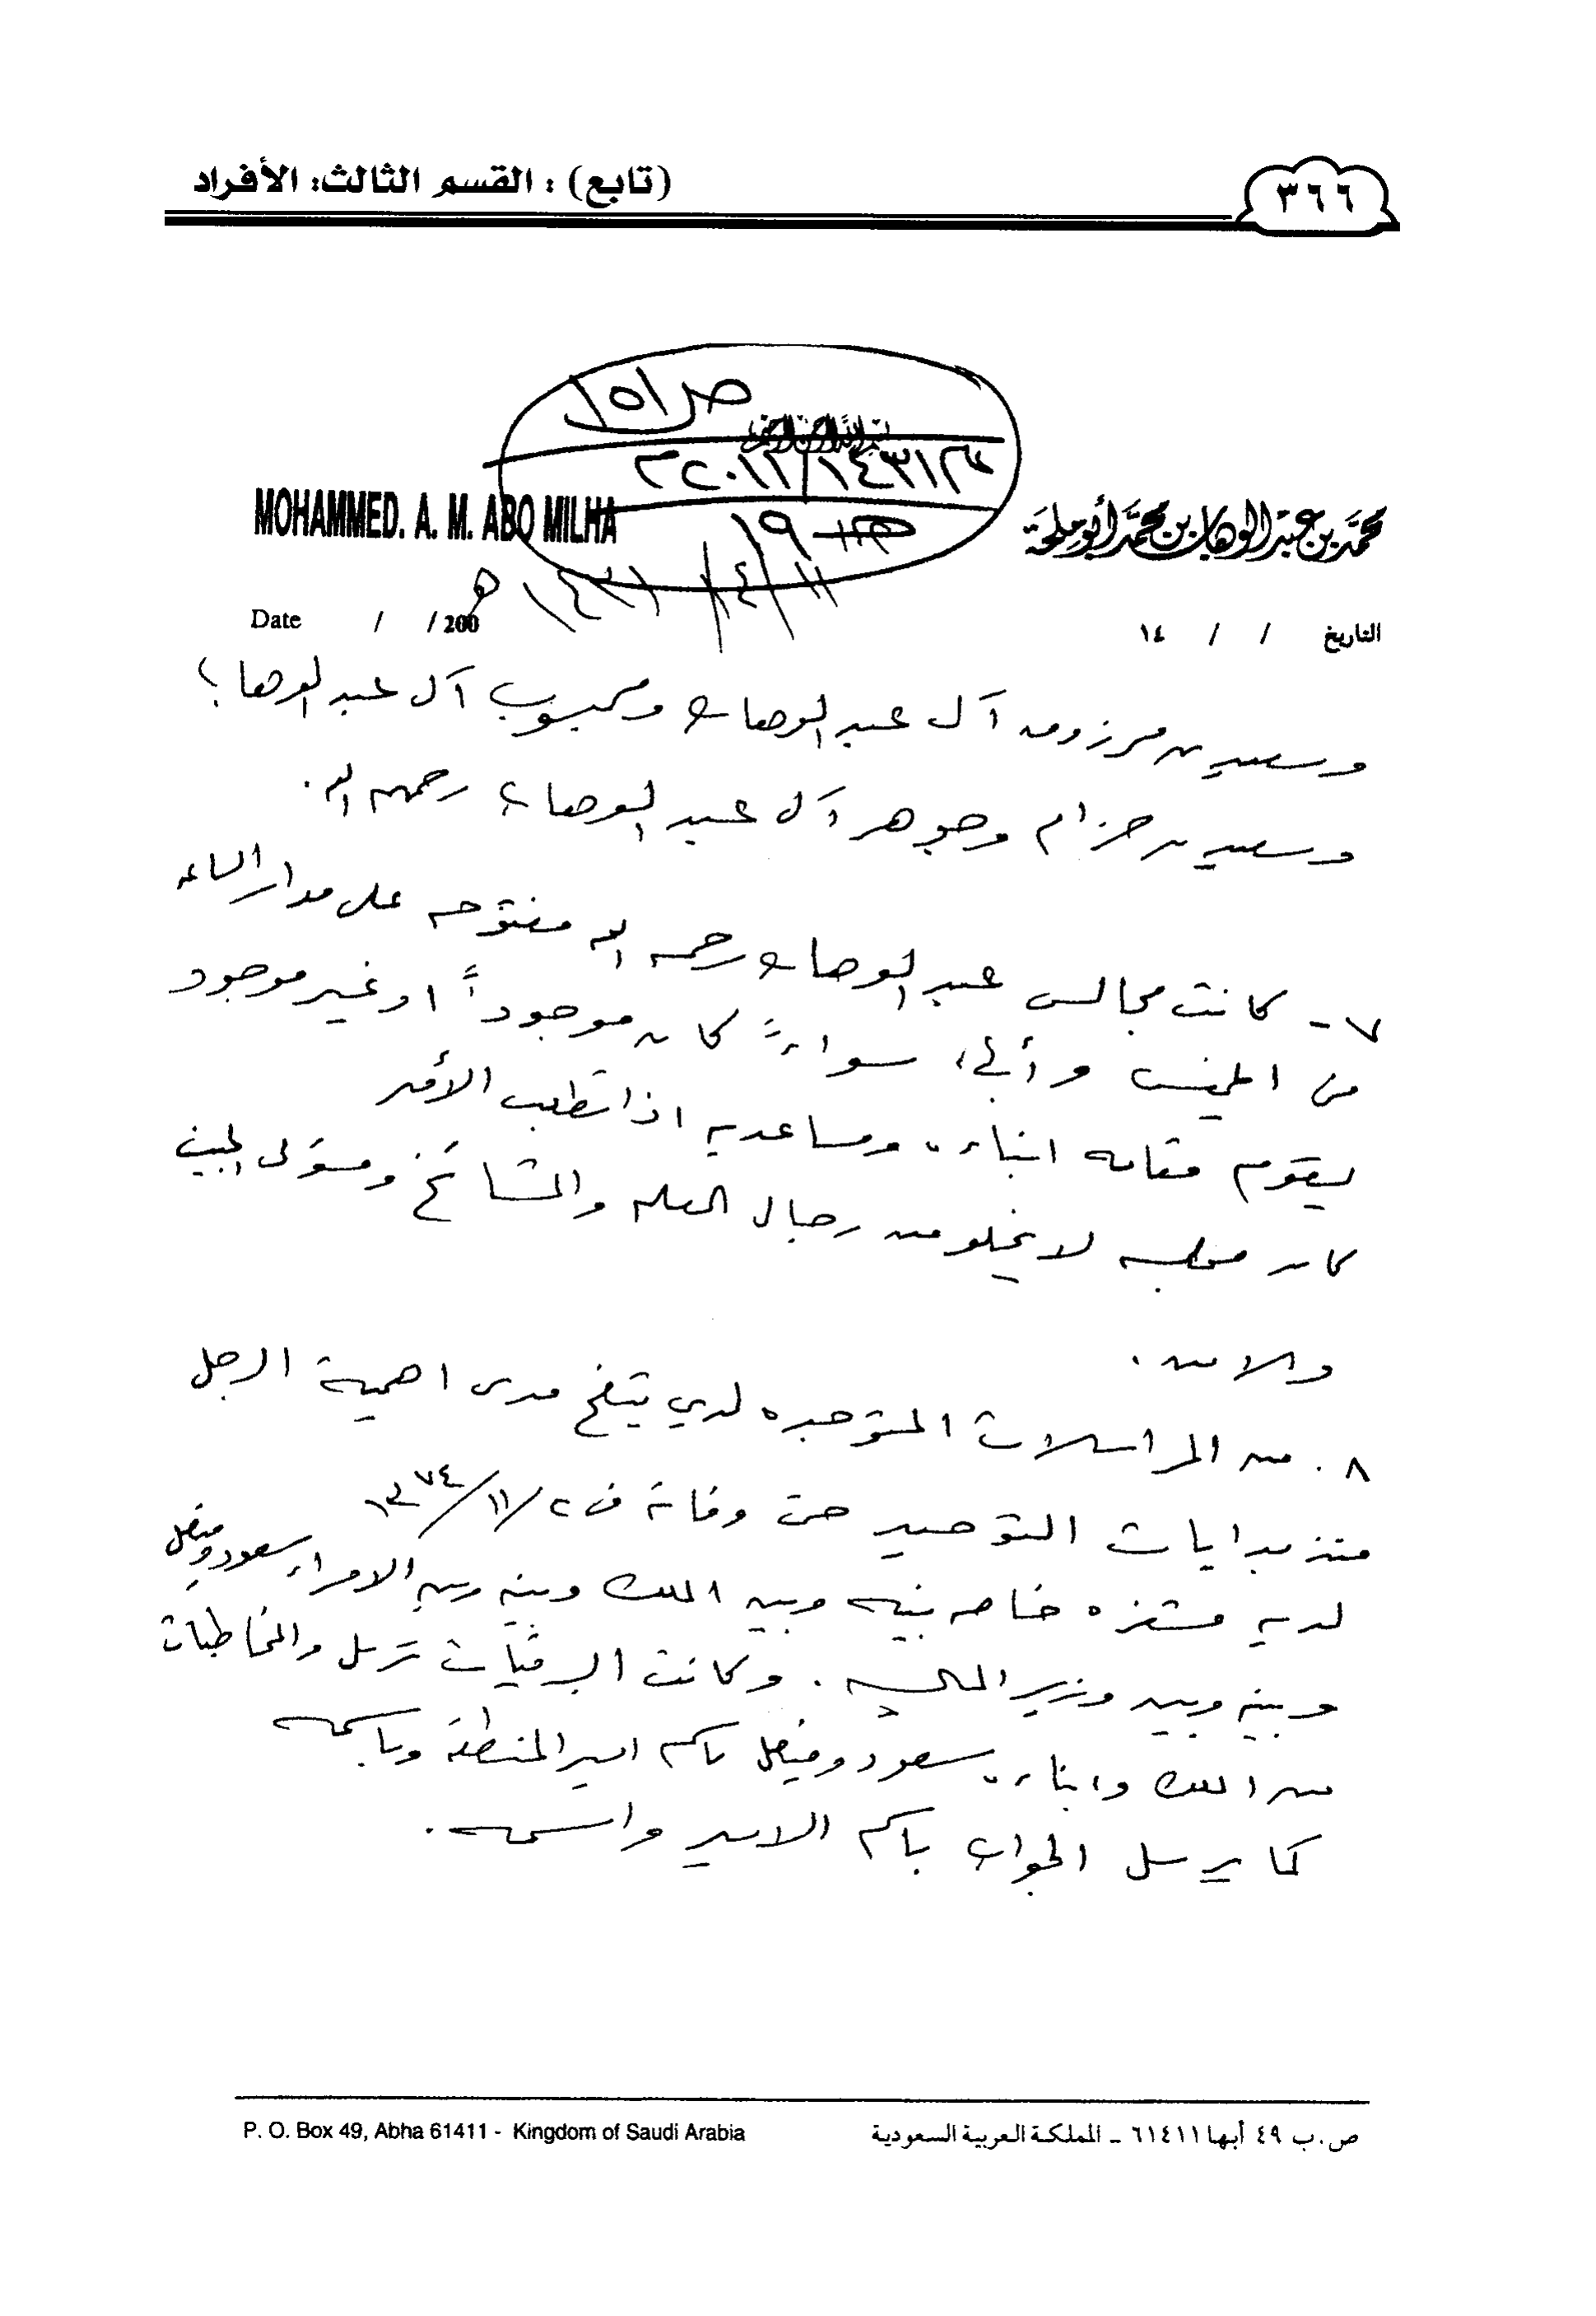 ٣٦٦
(تابع) : القسم الثالث: الأفراد
ص ١٥١
بسم الله الرحمن الرحيم
١٤٣١/٢٠١٢
١٩
MOHAMMED. A. M. ABO MILHA
محمد بن عبد الوهاب بن محمد أبو ملحة
١١/٤/١٤٣١هـ
التاريخ / / ١٤
Date / /200
وسعيد بن مرزوق آل عبد الوهاب ومحبوب آل عبد الوهاب
وسعيد بن حزام وجوهر آل عبد الوهاب رحمهم الله.
٧- كانت مجالس عبد الوهاب رحمه الله مفتوحه على مدار الساعه
من الخميس وأبها، سواءً كان موجوداً او غير موجود
يقوم مقامه ابناءه ومساعديه اذا تطلب الأمر
كان مجلسه لا يخلو من رجال العلم والمشائخ ومسؤلى الجيش
والامن.
٨. من المراسلات المتوجده لدي يتضح مدى اهمية الرجل
منذ بدايات التوحيد حتى وفاته في ٢/١١/١٣٧٤
لديه شفره خاصه بينه وبين الملك وبينه وبين الامراء سعود وفيصل
وبينه وبين وزير الماليه. وكانت البرقيات ترسل والمخاطبات
من الملك وابناءه سعود وفيصل باسم امير المنطقة وباسمه
كما يرسل الجواب باسم الامير واسمه.
P. O. Box 49, Abha 61411 - Kingdom of Saudi Arabia
ص.ب ٤٩ أبها ٦١٤١١ - المملكة العربية السعودية